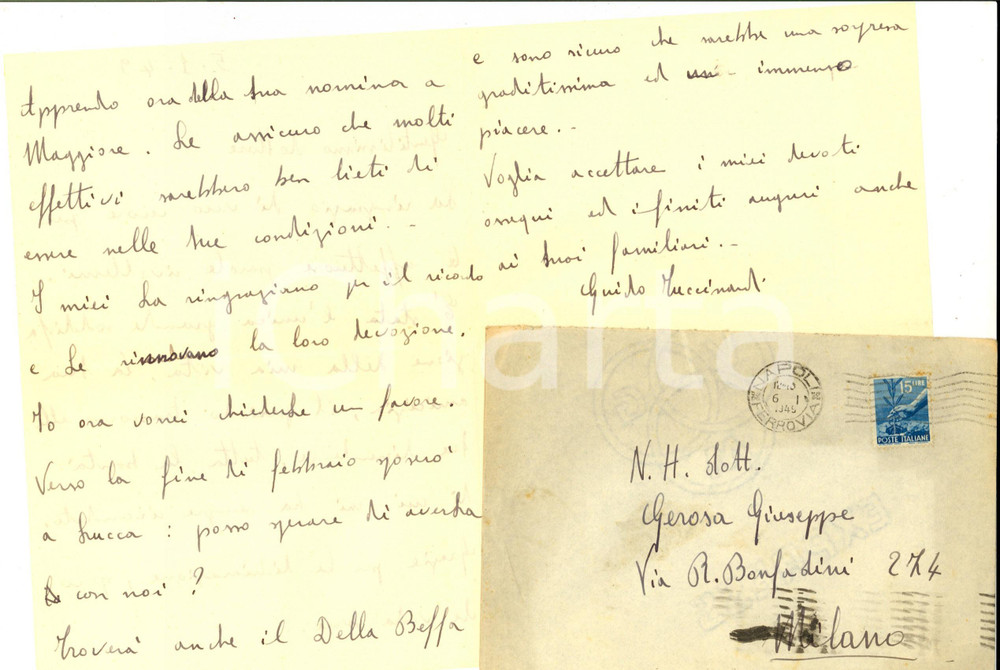 Apprendo ora della sua nomina a
Maggiore. Le assicuro che molti
effettivi sarebbero ben lieti di
essere nelle sue condizioni. -
I miei La ringraziano per il ricordo
e Le rinnovano la loro devozione.
Io ora vorrei chiederLe un favore.
Verso la fine di febbraio sposerò
a Lucca : posso sperare di averLa
con noi ?
Troverà anche il Della Beffa
e sono sicuro che sarebbe una sorpresa
graditissima ed un immenso
piacere. -
Voglia accettare i miei devoti
ossequi ed infiniti auguri anche
ai Suoi familiari. -
Guido Tuccinardi
NAPOLI
FERROVIA
6 I
15 LIRE
POSTE ITALIANE
N. H. dott.
Gerosa Giuseppe
Via R. Bonfadini 274
Milano
charta